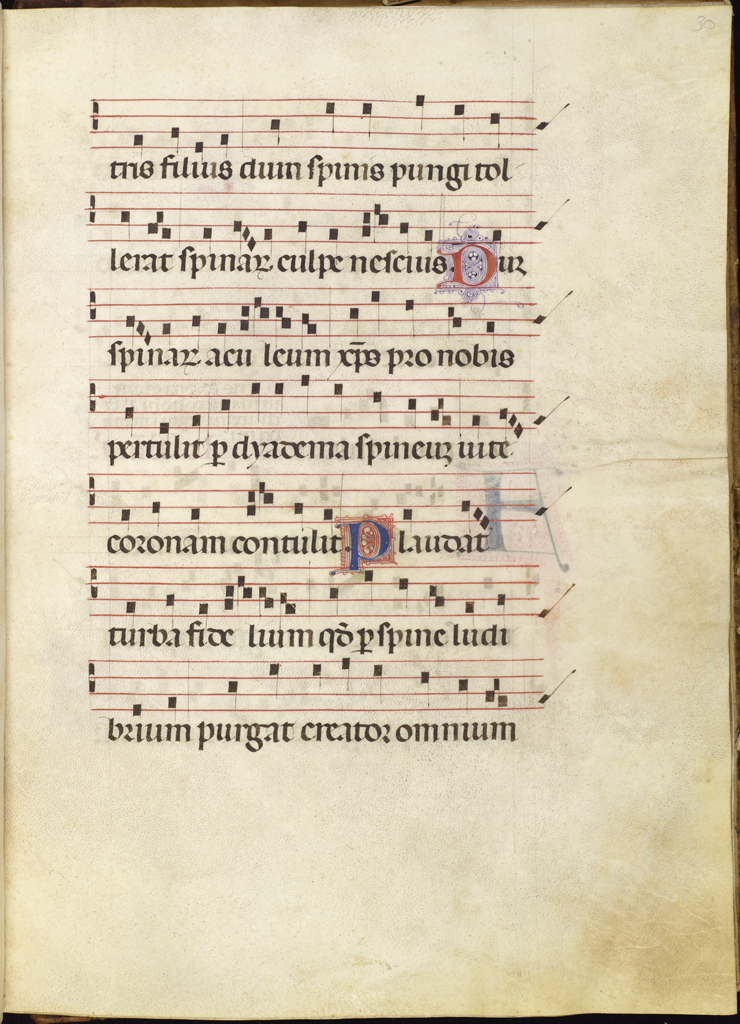 39
tris filius dum spinis pungi tol
lerat spinaꝝ culpe nescius. Dum
spinaꝝ acu leum xp̅s pro nobis
pertulit ꝑ dyadema spineuꝫ uite
coronam contulit. Plaudat
turba fide lium qd̅ ꝑ spine ludi
brium purgat creator omnium